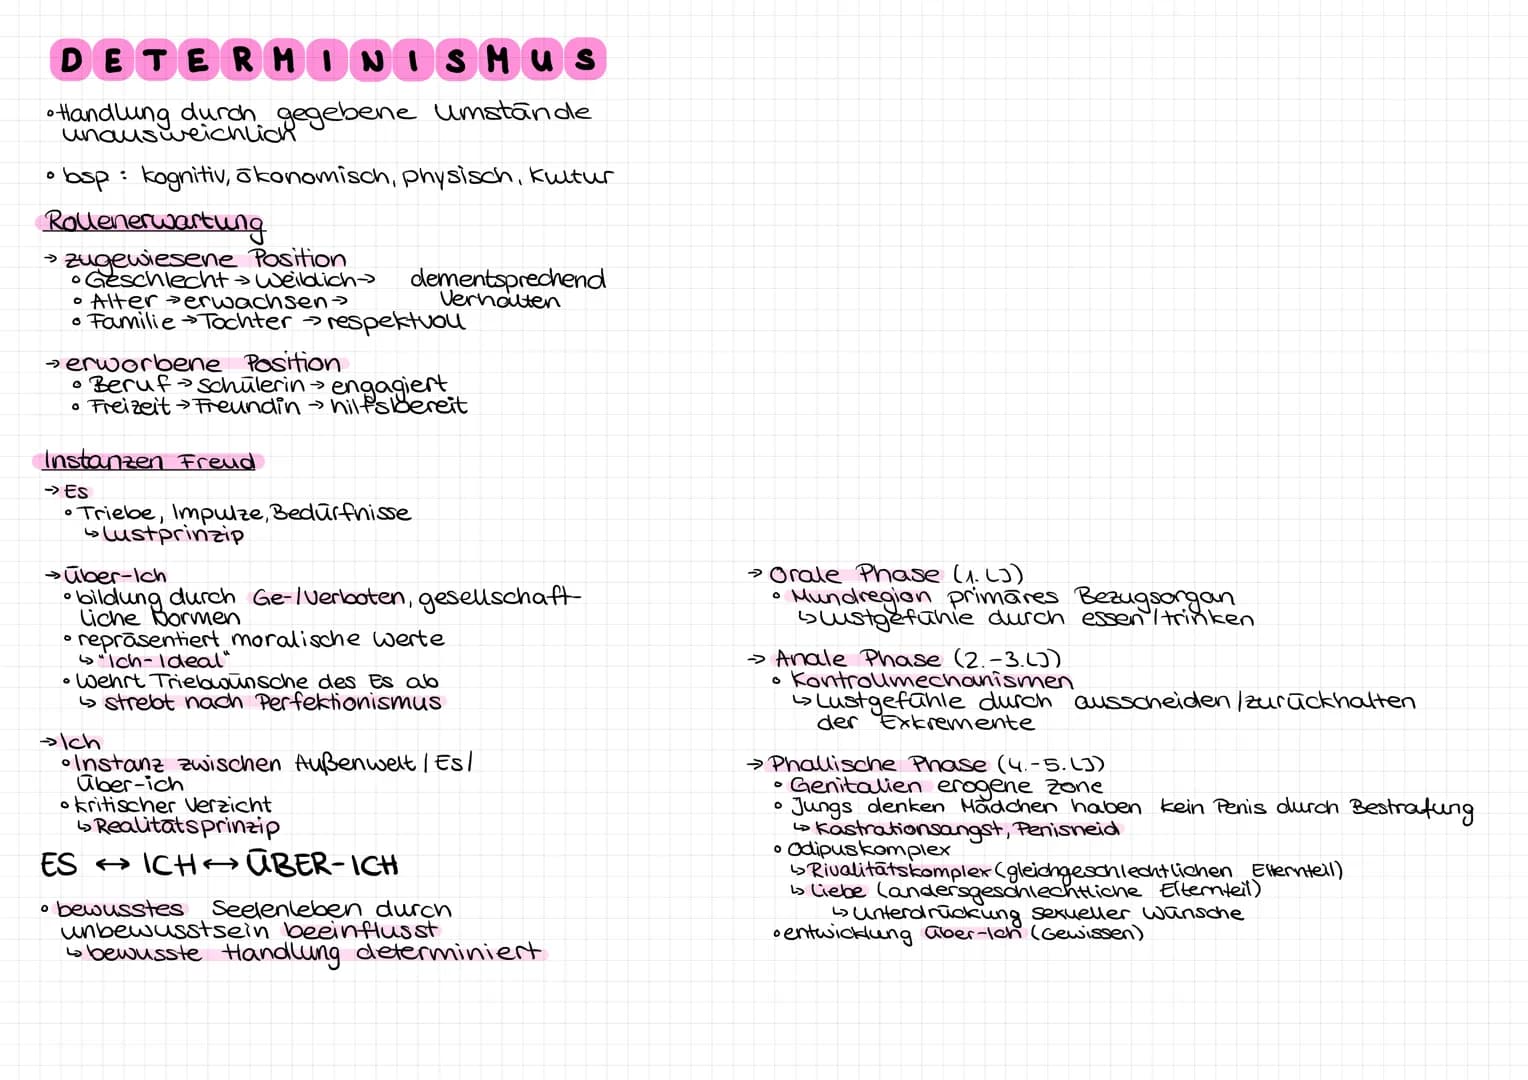 DETERMINISMUS
• Handlung durch gegebene Umstände
unausweichlich
• bsp: kognitiv, ökonomisch, physisch, Kultur
Rollenerwartung
→ zugewiesene Position
• Geschlecht → weiblich → dementsprechend
• Alter → erwachsen → Verhalten
• Familie → Tochter → respektvoll
→ erworbene Position
• Beruf → Schülerin → engagiert
• Freizeit → Freundin → hilfsbereit
Instanzen Freud
→ Es
• Triebe, Impulze, Bedürfnisse
↳ Lustprinzip
→ Über-Ich
• bildung durch Ge-/Verboten, gesellschaft-
liche Normen
• repräsentiert moralische Werte
↳ "Ich-Ideal"
• Wehrt Triebwünsche des Es ab
↳ strebt nach Perfektionismus
→ Ich
• Instanz zwischen Außenwelt / Es /
Über-ich
• kritischer Verzicht
↳ Realitätsprinzip
ES ↔ ICH ↔ ÜBER-ICH
• bewusstes Seelenleben durch
unbewusstsein beeinflusst
↳ bewusste Handlung determiniert
→ Orale Phase (1. LJ)
• Mundregion primäres Bezugsorgan
↳ Lustgefühle durch essen / trinken
→ Anale Phase (2.-3. LJ)
• Kontrollmechanismen
↳ Lustgefühle durch ausscheiden / zurückhalten
der Exkremente
→ Phallische Phase (4.-5. LJ)
• Genitalien erogene Zone
• Jungs denken Mädchen haben kein Penis durch Bestrafung
↳ Kastrationsangst, Penisneid
• Ödipuskomplex
↳ Rivalitätskomplex (gleichgeschlechtlichen Elternteil)
↳ Liebe (andersgeschlechtliche Elternteil)
↳ Unterdrückung sexueller Wünsche
• entwicklung Über-Ich (Gewissen)